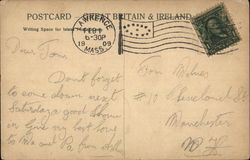 POSTCARD
BRITAIN & IRELAND
Writing Space for
MASS.
6-30P
19 09
Dear Tom:
Don't forget
to come down next
Saturday a good
Give my best love
to Ma and Pa from
Tom
#10 Cleveland St
Manchester
N. H.